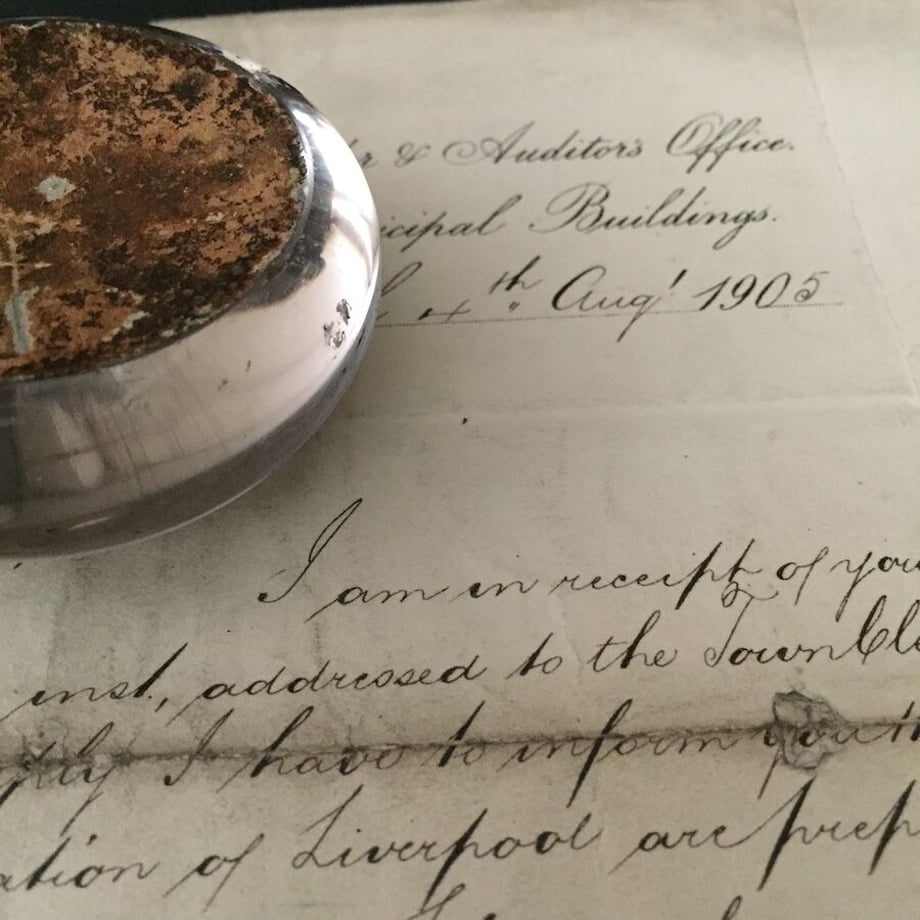 r & Auditor's Office.
icipal Buildings.
4th Augt 1905
I am in receipt of you
inst, addressed to the Town Cle
ply I have to inform you th
ation of Liverpool are prep